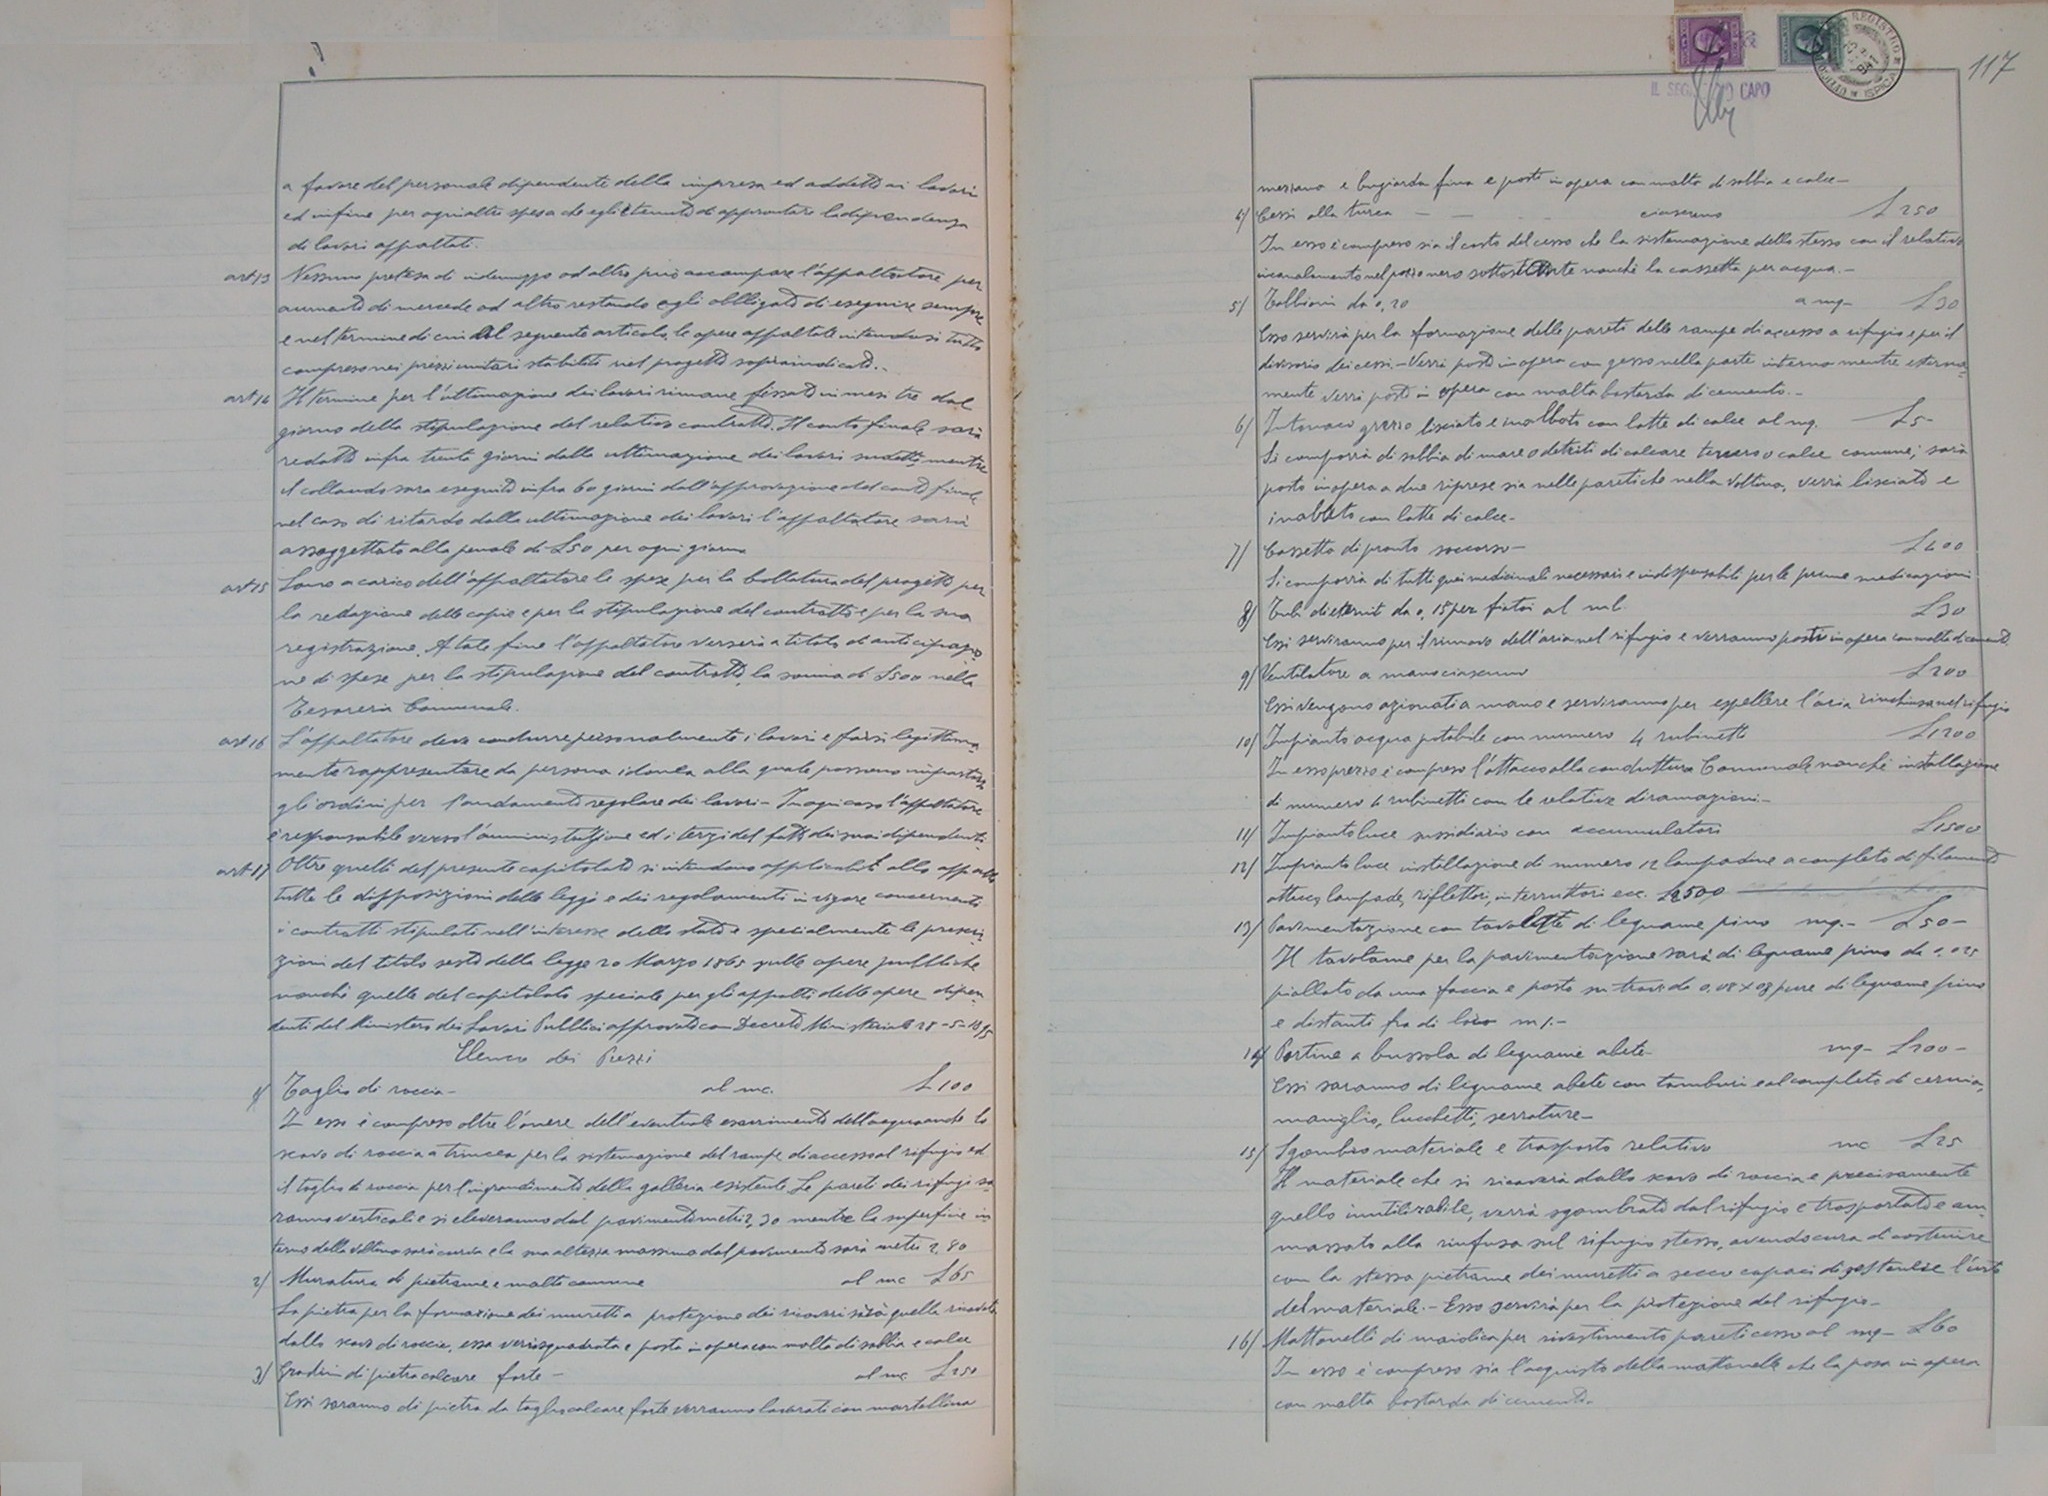 a favore del personale dipendente della impresa ed addetto ai lavori
ed infine per ogni altra spesa che egli è tenuto di approntare la dipendenza
di lavori appaltati.
art 13 Nessuna pretesa di indennizzo od altro può accampare l'appaltatore per
aumento di mercede od altro restando egli obbligato di eseguire sempre
e nel termine di cui al seguente articolo, le opere appaltate intendosi tutto
compreso nei prezzi unitari stabiliti nel progetto sopraindicato.-
art 14 Il termine per l'ultimazione dei lavori rimane fissato in mesi tre dal
giorno della stipulazione del relativo contratto. Il conto finale sarà
redatto infra trenta giorni dalla ultimazione dei lavori sudetti, mentre
il collaudo sara eseguito infra 60 giorni dall'approvazione del conto finale
nel caso di ritardo dalla ultimazione dei lavori l'appaltatore sarà
assoggettato alla penale di £50 per ogni giorno
art 15 Sono a carico dell'appaltatore le spese per la bollatura del progetto per
la redazione delle copie e per la stipulazione del contratto e per la sua
registrazione. A tale fine l'appaltatore verserà a titolo di anticipazio-
ne di spese per la stipulazione del contratto, la somma di £500 nella
Tesoreria Comunale.
art 16 L'appaltatore deve condurre personalmente i lavori e farsi legittima-
mente rappresentare da persona idonea alla quale possono impartirsi
gli ordini per l'andamento regolare dei lavori - In ogni caso l'appaltatore
è responsabile verso l'amministrazione ed i terzi del fatto dei suoi dipendenti
art 17 Oltre quelli del presente capitolato si intendono applicabili allo appalto
tutte le disposizioni delle leggi e dei regolamenti in vigore concernenti
i contratti stipulati nell'interesse dello stato e specialmente le prescri-
zioni del titolo sesto della legge 20 Marzo 1865 sulle opere pubbliche
nonchè quelle del capitolato speciale per gli appalti delle opere dipen-
denti del Ministero dei Lavori Pubblici approvato con Decreto Ministeriale 28-5-1895
Elenco dei Prezzi
1/ Taglio di roccia - al mc. £ 100
In esso è compreso oltre l'onere dell'eventuale esaurimento dell'acqua anche lo
scavo di roccia a trincea per la sistemazione del rampe di accesso al rifugio ed
il taglio di roccia per l'ingrandimento della galleria esistente. Le pareti dei rifugi sa-
ranno verticali e si eleveranno dal pavimento metri 2,30 mentre la superficie in
terno della voltina sarà curva e la sua altezza massima dal pavimento sarà metri 2,80
2/ Muratura di pietrame e malta comune al mc £65
La pietra per la formazione dei muretti a protezione dei ricoveri sarà quella ricavata
dallo scavo di roccia, essa verrà squadrata e posta in opera con malta di sabbia e calce
3/ Gradini di pietra calcare forte - al mc £250
Essi saranno di pietra da taglio calcare forte verranno lavorati con martellina
117
IL SEGRETARIO CAPO
REGISTRO ISPICA
mezzana e bugiarda fina e posti in opera con malta di sabbia e calce -
4/ Cessi alla turca - - - ciascuno £ 250
In esso è compreso sia il costo del cesso che la sistemazione dello stesso con il relativo
incanalamento nel pozzo nero sottostante nonchè la cassetta per acqua.-
5/ Tabbioni da 0,20 a mq- £30
Esso servirà per la formazione delle pareti delle rampe di accesso a rifugio e per il
divisorio dei cessi. - Verrà posto in opera con gesso nella parte interna mentre esterna-
mente verrà posto in opera con malta bastarda di cemento.-
6/ Intonaco grezzo lisciato e imalbato con latte di calce al mq. £5-
Si comporrà di sabbia di mare o detriti di calcare tenero o calce comune; sarà
posto in opera a due riprese sia nelle pareti che nella voltina, verrà lisciato e
inalbato con latte di calce-
7/ Cassetta di pronto soccorso - £400
Si comporrà di tutti quei medicinali necessari e indispensabili per le prime medicazioni
8/ Tubi di eternit da 0,15 per fiatoi al ml. £30
Essi serviranno per il rinnovo dell'aria nel rifugio e verranno posti in opera con malta di cemento
9/ Ventilatore a mano ciascuno £200
Essi vengono azionati a mano e serviranno per espellere l'aria rinchiusa nel rifugio
10/ Impianto acqua potabile con numero 4 rubinetti £1200
In esso prezzo è compreso l'attacco alla conduttura Comunale nonchè installazione
di numero 4 rubinetti con le relative diramazioni.-
11/ Impianto luce sussidiario con accumulatori £1500
12/ Impianto luce installazione di numero 12 lampadine a completo di filamenti
attacco, lampade, riflettori, interruttori ecc. £2500
13/ Pavimentazione con tavolette di legname pino mq.- £50-
Il tavolame per la pavimentazione sarà di legname pino da 0,025
piallato da una faccia e posto su travi da 0,08 x 08 pure di legname pino
e distanti fra di loro m 1.-
14/ Portine a bussola di legname abete- mq- £200-
Essi saranno di legname abete con tamburi e al completo di cerniere,
maniglia, lucchetti, serrature-
15/ Sgombro materiale e trasporto relativo mc £25
Il materiale che si ricaverà dallo scavo di roccia e precisamente
quello inutilizabile, verrà sgombrato dal rifugio e trasportato e am-
massato alla rinfusa sul rifugio stesso, avendo cura di costruire
con la stessa pietrame dei muretti a secco capaci di sostenere l'urto
del materiale. - Esso servirà per la protezione del rifugio-
16/ Mattonelli di maiolica per rivestimento pareti cesso al mq- £60
In esso è compreso sia l'acquisto della mattonelle che la posa in opera
con malta bastarda di cemento.